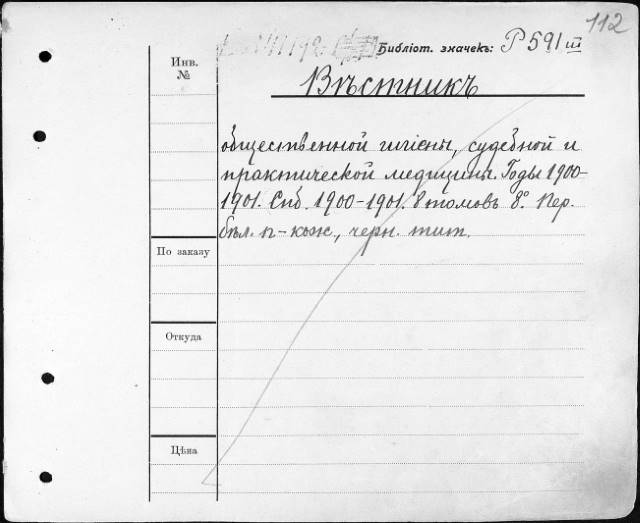 112
Библіот. значекъ: P 591 III
Инв.
№
Вѣстникъ
общественной гигіены, судебной и
практической медицины. Годы 1900-
1901. Спб. 1900-1901. 8 томовъ 8°. Пер.
бѣл. п-кож., черн. тит.
По заказу
Откуда
Цѣна